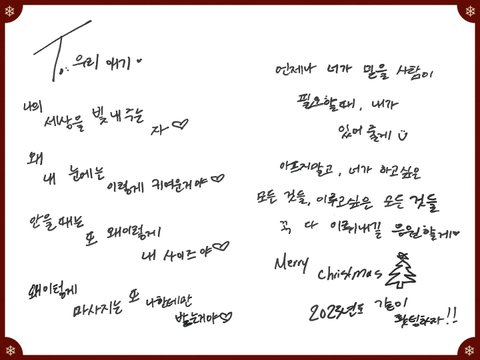 To. 우리 애기♥
나의
세상을 빛내주는
자♡
왜
내 눈에는
이렇게 귀여운거야♡
안을때는
또 왜이렇게
내 사이즈야♡
왜이렇게
마사지는 또 나한테만
받는거야♡
언제나 너가 믿을 사람이
필요할때, 내가
있어줄게 ☺
아프지말고, 너가 하고싶은
모든 것들, 이루고싶은 모든 것들
꼭 다 이뤄내길 응원할게♥
Merry Christmas
2025년도 같이
화이팅하자!!